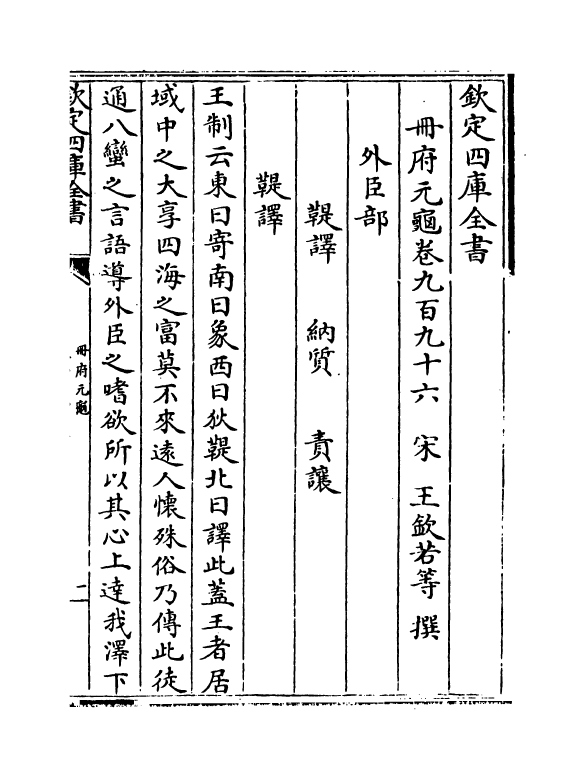 欽定四庫全書
冊府元龜卷九百九十六　宋　王欽若等　撰
外臣部
鞮譯　納質　責讓
鞮譯
王制云東曰寄南曰象西曰狄鞮北曰譯此蓋王者居
域中之大享四海之富莫不來遠人懷殊俗乃傳此徒
通八蠻之言語導外臣之嗜欲所以其心上達我澤下
欽定四庫全書
冊府元龜